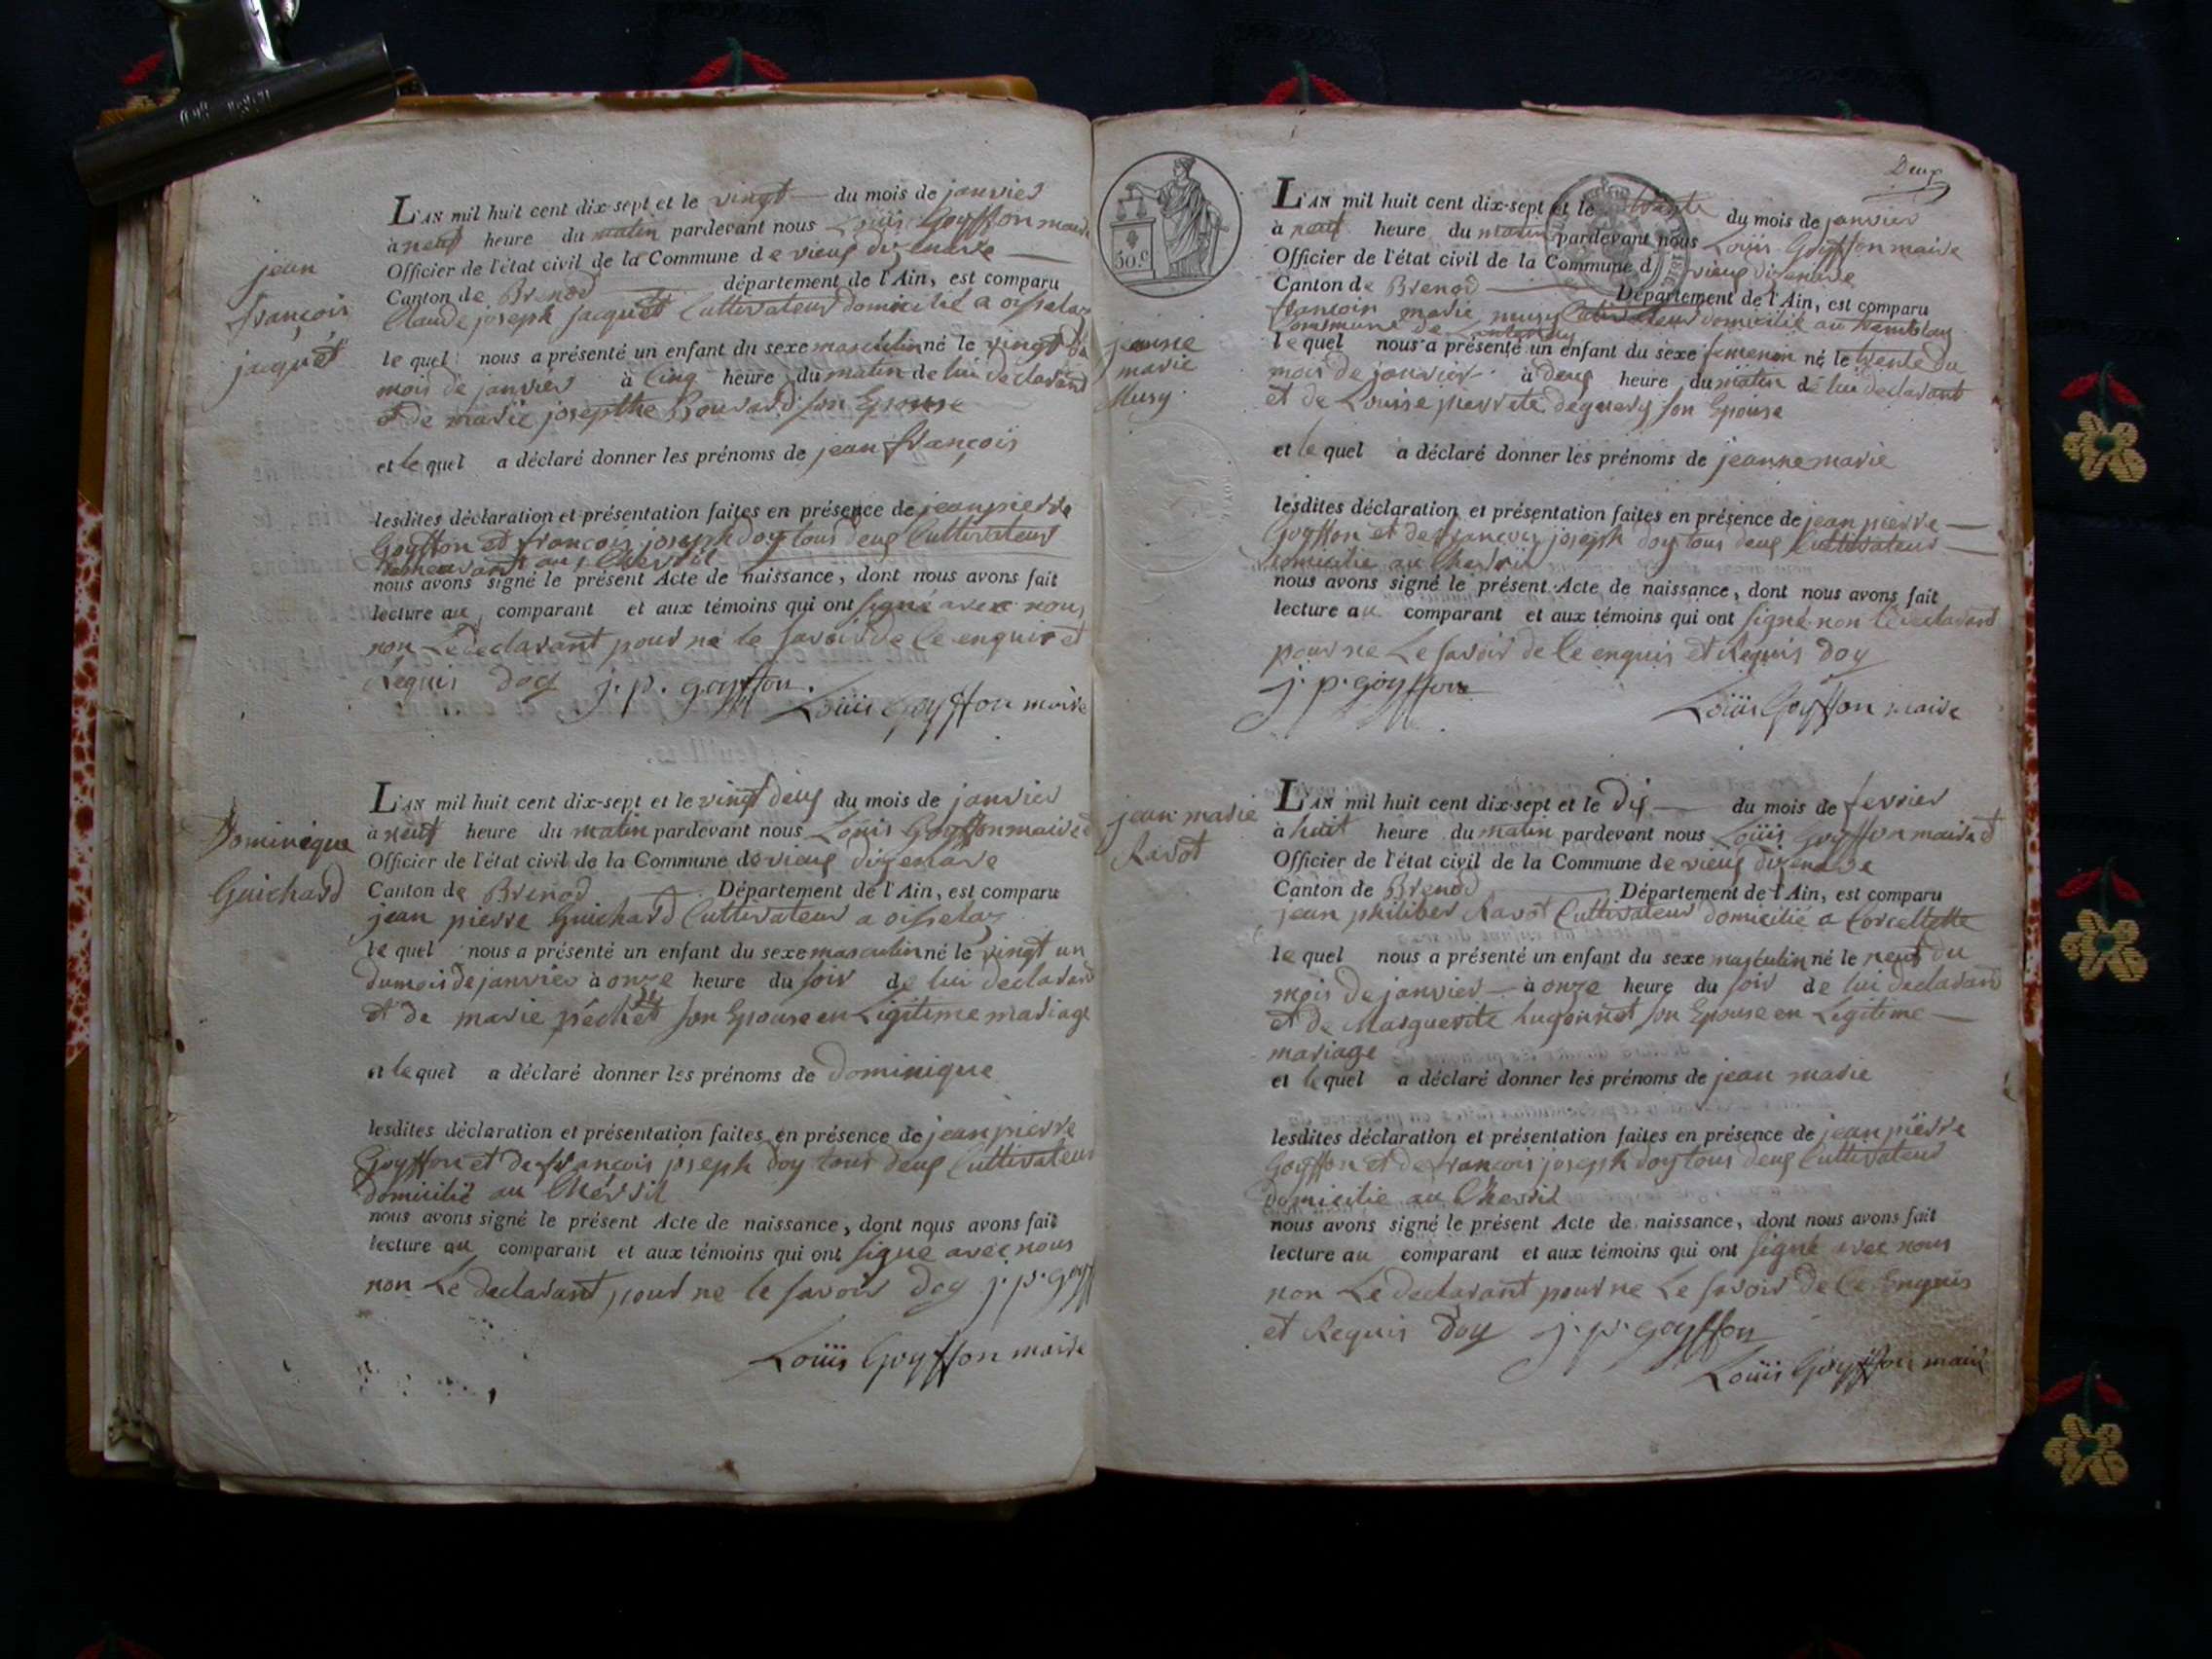 jean
françois
jacquét
L'AN mil huit cent dix-sept et le vingt du mois de janvier
à neuf heure du matin pardevant nous Louis Goyffon maire
Officier de l'état civil de la Commune de vieux dizenave
Canton de Brenod département de l'Ain, est comparu
Claude joseph jacquét Cultivateur domicilié a oisselaz
le quel nous a présenté un enfant du sexe masculin né le vingt du
mois de janvier à Cinq heure du matin de lui déclarant
et de marie josepthe son Epouse
et le quel a déclaré donner les prénoms de jean françois
lesdites déclaration et présentation faites en présence de jean pierre
Goyffon et françois joseph doy tous deux Cultivateur
au Chevril
nous avons signé le présent Acte de naissance, dont nous avons fait
lecture au comparant et aux témoins qui ont signé avec nous
non Le declarant pour ne le savoir de Ce enquis et
Requis doy j. p. goyffon.
Louis Goyffon maire
Dominique
Guichard
L'AN mil huit cent dix-sept et le vingt deux du mois de janvier
à neuf heure du matin pardevant nous Louis Goyffon maire et
Officier de l'état civil de la Commune de vieux dizenave
Canton de Brenod Département de l'Ain, est comparu
jean pierre Guichard Cultivateur a oisselaz
le quel nous a présenté un enfant du sexe masculin né le vingt un
du mois de janvier à onze heure du soir de lui declarant
et de marie péchet son Epouse en Légitime mariage
et le quel a déclaré donner les prénoms de dominique
lesdites déclaration et présentation faites en présence de jean pierre
Goyffon et de françois joseph doy tous deux Cultivateur
domicilié au Chevril
nous avons signé le présent Acte de naissance, dont nous avons fait
lecture au comparant et aux témoins qui ont signé avec nous
non Le declarant pour ne le savoir doy j. p. goyff
Louis Goyffon maire
Deux
50.c
jeanne
marie
Musy
L'AN mil huit cent dix-sept et le trente du mois de janvier
à neuf heure du matin pardevant nous Louis Goyffon maire
Officier de l'état civil de la Commune d vieux dizenave
Canton de Brenod Département de l'Ain, est comparu
françois marie musy Cultivateur domicilié au tremblay
Commune de
le quel nous a présenté un enfant du sexe femenin né le trente du
mois de janvier à deux heure du matin de lui declarant
et de Louise pierrete deguery son Epouse
et le quel a déclaré donner les prénoms de jeanne marie
lesdites déclaration et présentation faites en présence de jean pierre
Goyffon et de françois joseph doy tous deux Cultivateur
domicilie au Chevril
nous avons signé le présent Acte de naissance, dont nous avons fait
lecture au comparant et aux témoins qui ont signé non le declarant
pour ne Le savoir de Ce enquis et Requis doy
j. p. goyffon
Louis Goyffon maire
jean marie
Ravot
L'AN mil huit cent dix-sept et le dix du mois de fevrier
à huit heure du matin pardevant nous Louis Goyffon maire et
Officier de l'état civil de la Commune de vieux dizenave
Canton de Brenod Département de l'Ain, est comparu
jean philiber Ravot Cultivateur domicilié a Corcellette
le quel nous a présenté un enfant du sexe masculin né le neuf du
mois de janvier à onze heure du soir de lui declarant
et de Marguerite hugonnet son Epouse en Légitime
mariage
et le quel a déclaré donner les prénoms de jean marie
lesdites déclaration et présentation faites en présence de jean pierre
Goyffon et de françois joseph doy tous deux Cultivateur
domicilie au Chevril
nous avons signé le présent Acte de naissance, dont nous avons fait
lecture au comparant et aux témoins qui ont signé avec nous
non Le declarant pour ne Le savoir de Ce Enquis
et Requis doy j. p. goyffon
Louis Goyffon maire